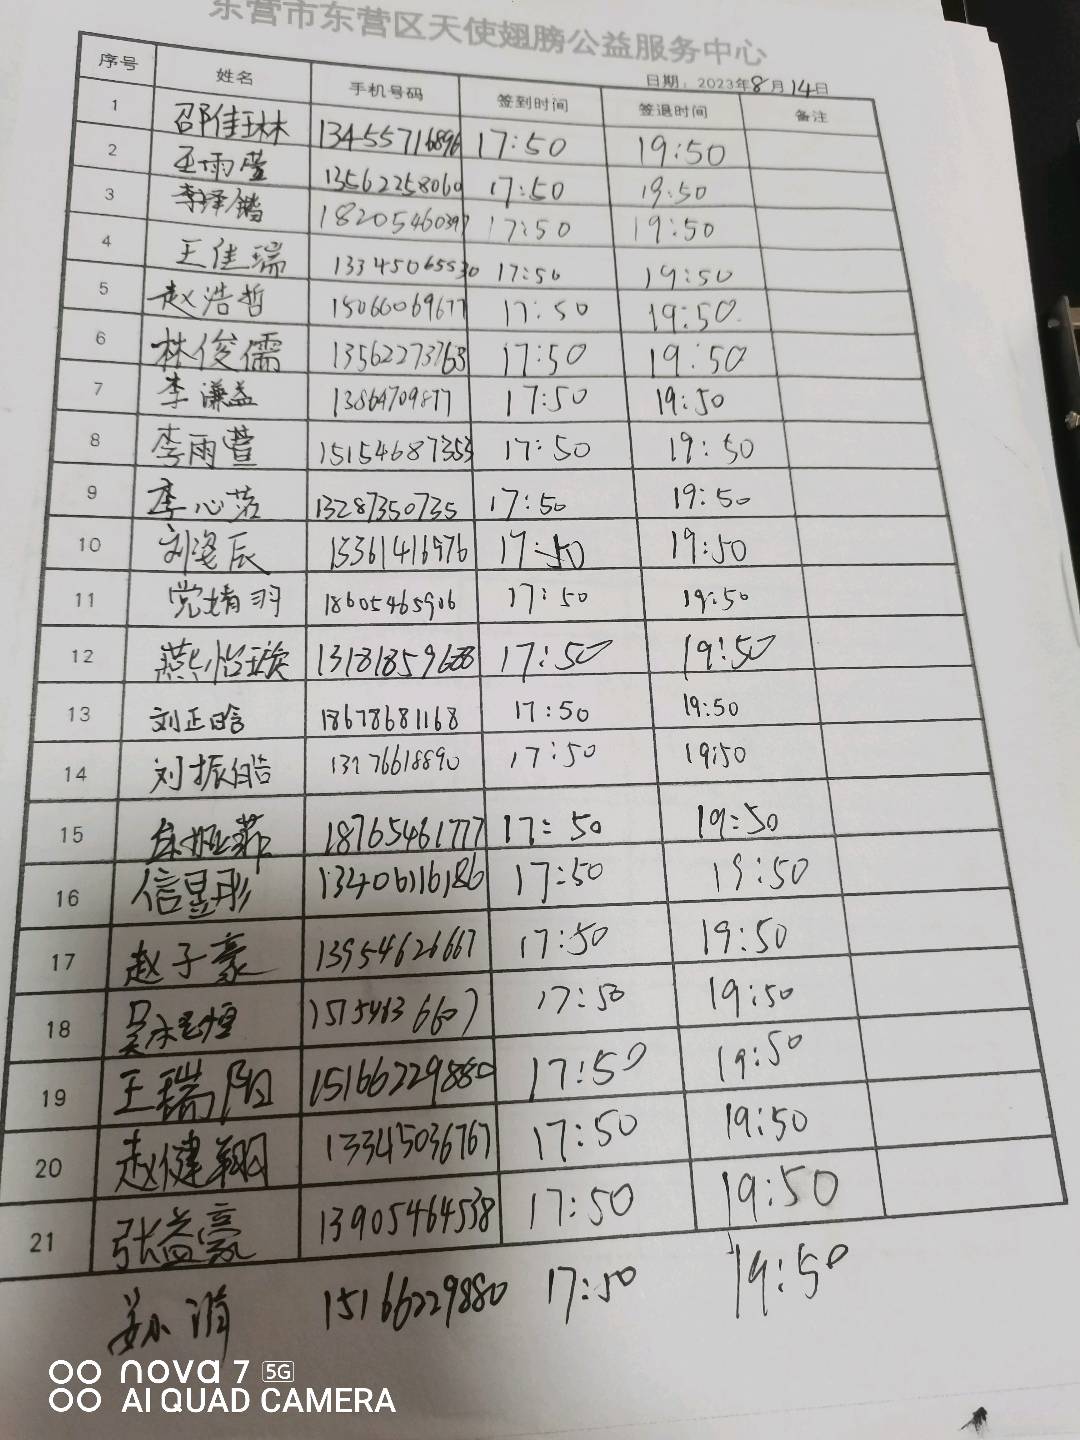 东营市东营区天使翅膀公益服务中心
日期：2023年8月14日
序号 姓名 手机号码 签到时间 签退时间 备注
1 邵佳琳 13455716896 17:50 19:50
2 王雨莹 13562258060 17:50 19:50
3 李泽锴 18205460397 17:50 19:50
4 王佳瑞 13345065530 17:50 19:50
5 赵浩哲 15066069677 17:50 19:50
6 林俊儒 13562273763 17:50 19:50
7 李谦益 13864709877 17:50 19:50
8 李雨萱 15154687353 17:50 19:50
9 李心茹 13287350735 17:50 19:50
10 刘笔辰 15361416976 17:50 19:50
11 党婧羽 18605465906 17:50 19:50
12 燕怡璇 13181859688 17:50 19:50
13 刘正晗 18678681168 17:50 19:50
14 刘振皓 13276618890 17:50 19:50
15 18765461777 17:50 19:50
16 信昱彤 13406116186 17:50 19:50
17 赵子豪 13954626667 17:50 19:50
18 17:50 19:50
19 王瑞阳 15166229880 17:50 19:50
20 赵健翔 13345036767 17:50 19:50
21 张益豪 13905464538 17:50 19:50
15166229880 17:50 19:50
nova 7 5G
AI QUAD CAMERA